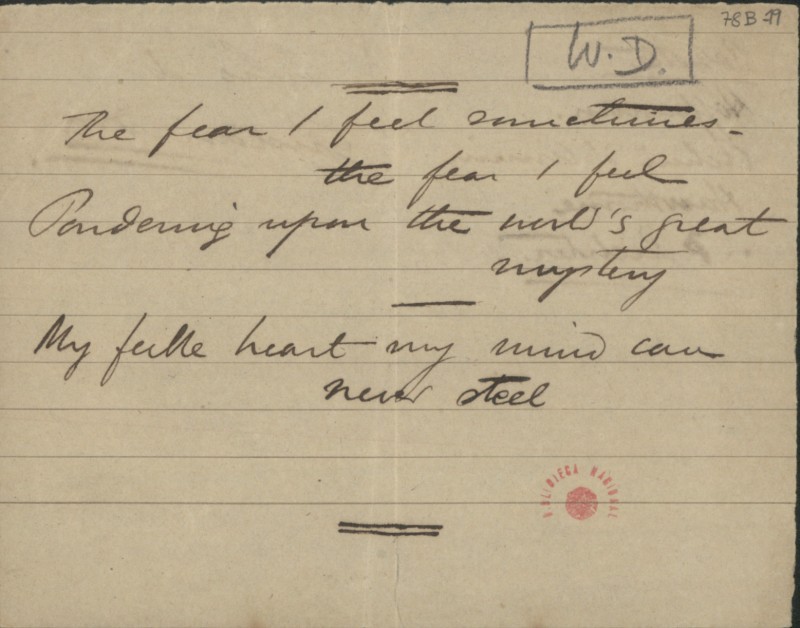 78B-79
W.D.
The fear I feel sometimes -
the fear I feel
Pondering upon the world's great
mystery
My feeble heart my mind can
never steel
BIBLIOTECA NACIONAL